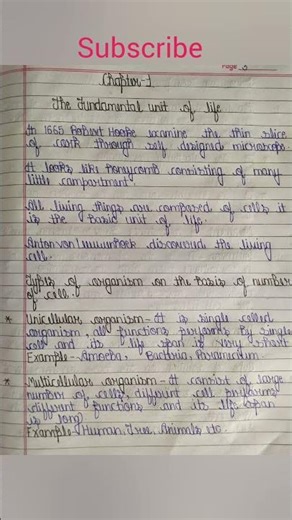 Subscribe
Page 2
Chapter-1
The Fundamental unit of life
In 1665 Robert Hooke examine the thin slice
of cork through self designed microscope.
It looks like honeycomb consisting of many
little compartment.
All living things are composed of cells it
is the basic unit of life.
Anton van Leeuwenhoek discovered the living
cell.
Types of organism on the basis of number
of cell.
* Unicellular organism - It is single celled
organism, all functions performs by single
cell and its life span is very short
Example - Amoeba, Bacteria, Paramecium
* Multicellular organism - It consist of large
number of cells, different cell performs
different functions and its life span
is long
Example - Human, Tree, Animals etc.